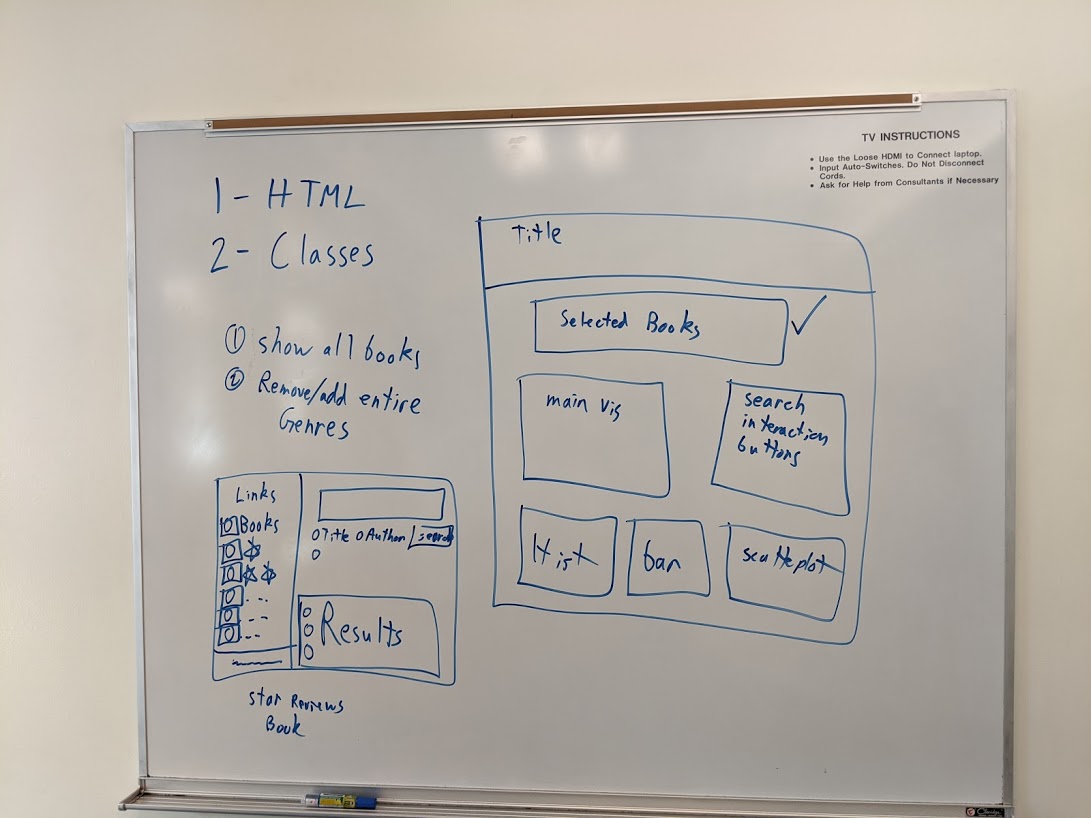 TV INSTRUCTIONS
• Use the Loose HDMI to Connect laptop.
• Input Auto-Switches. Do Not Disconnect
Cords.
• Ask for Help from Consultants if Necessary
1- HTML
2- Classes
① show all books
② Remove/add entire
Genres
Links
Books
Title Author search
Results
Star Reviews
Book
Title
Selected Books ✓
main vis
search
interaction
buttons
Hist
bar
scatteplot